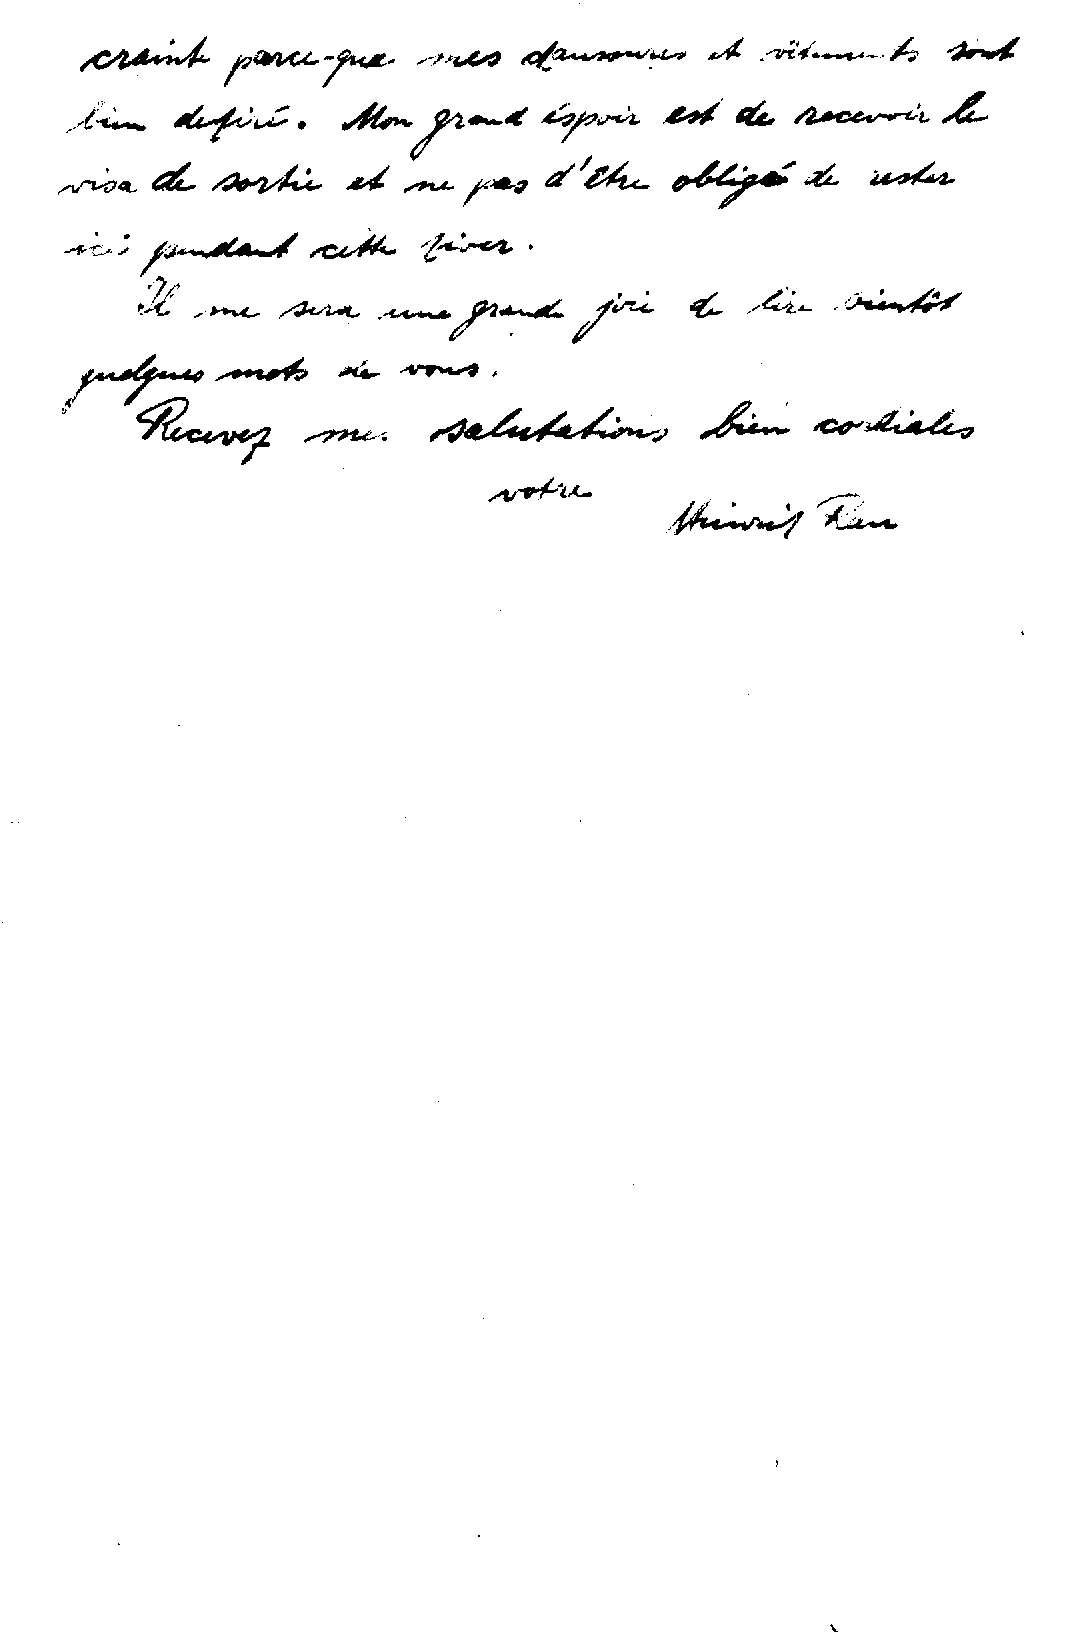 crainte parce-que mes chaussures et vêtements sont
bien
Mon grand éspoir est de recevoir le
visa de sortie et ne pas d'être obligé de rester
ici pendant cette hiver.
Il me sera une grande joie de lire bientôt
quelques mots de vous.
Recevez mes salutations bien cordiales
votre